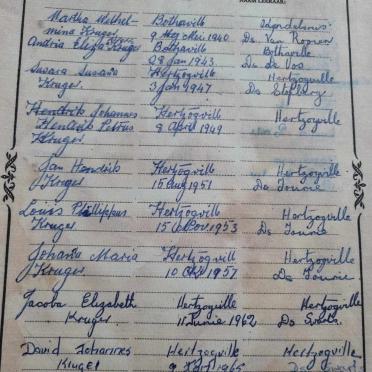 NAAM LEERAAR:
Martha Wilhel- Bothaville Wyndelinus:
mina Kruger 9 Mei 1940 Ds Van Rooyen
Andria Eliza Kruger Bothaville Bothaville
28 Jan 1943 Ds de Vos
Susara Susana Hertzogville Hertzogville
Kruger. 3 Jan 1947 Ds Stofberg
Hendrik Johannes Hertzogville Hertzogville
Hendrik Petrus 8 April 1949
Kruger
Jan Hendrik Hertzogville Hertzogville
Kruger 15 Aug 1951 Ds Fourie
Louis Phillippus Hertzogville Hertzogville
Kruger 15 Nov 1953 Ds Fourie
Johanna Maria Hertzogville Hertzogville
Kruger 10 Okt 1957 Ds Fourie
Jacoba Elizabeth Hertzogville Hertzogville
Kruger. 11 Junie 1962 Ds
David Johannes Hertzogville Hertzogville
Kruger 9 1965 Ds